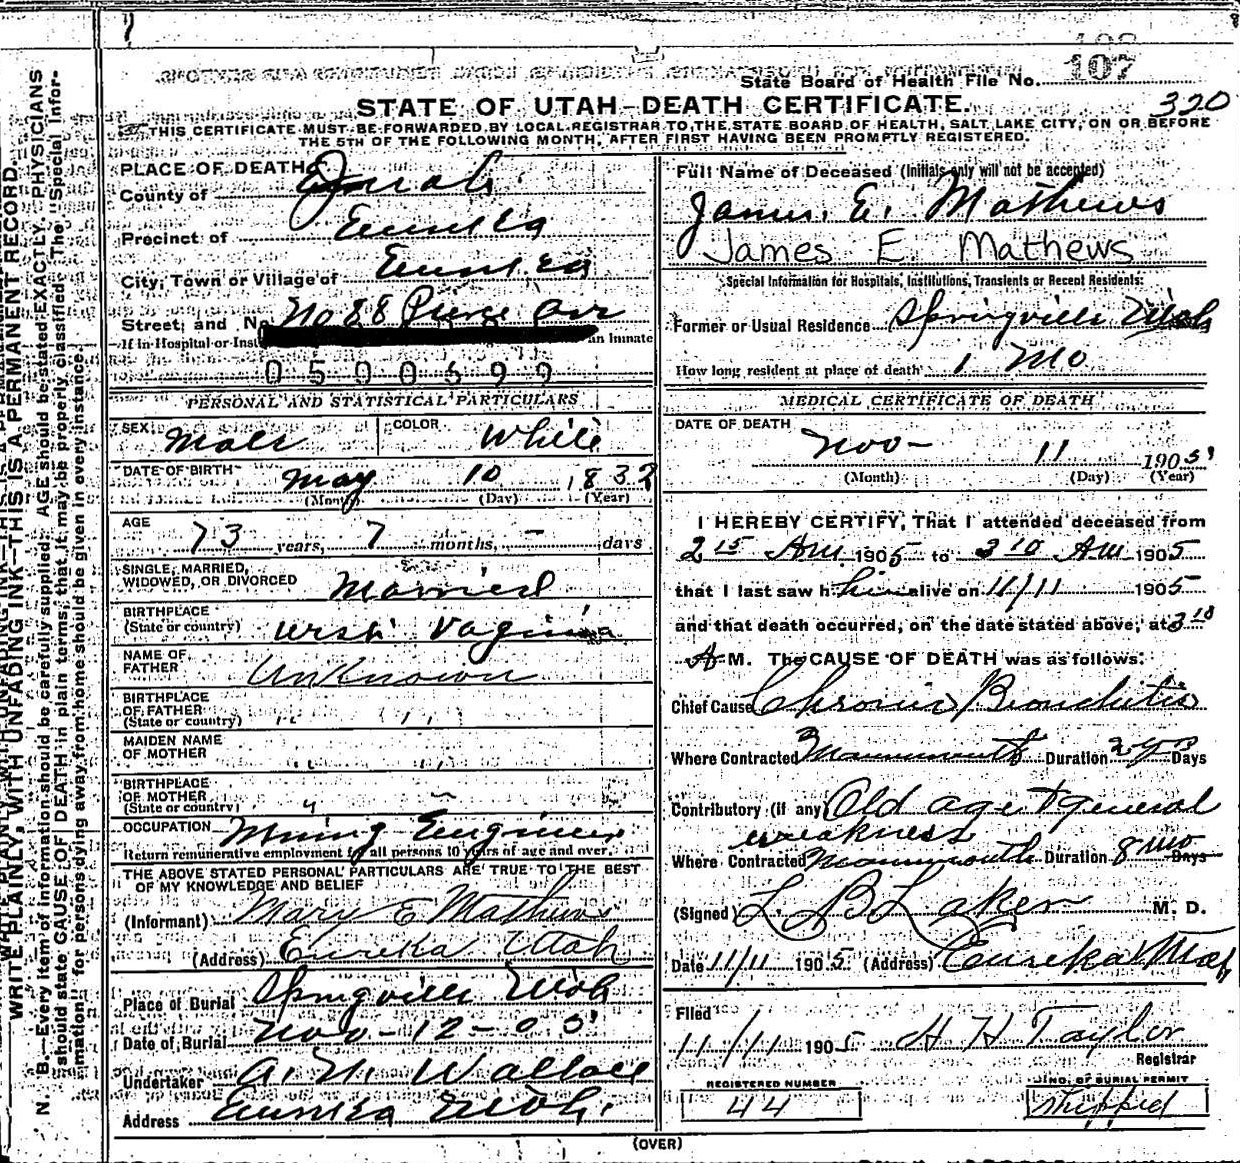 State Board of Health File No. 107
320
STATE OF UTAH—DEATH CERTIFICATE.
THIS CERTIFICATE MUST BE FORWARDED BY LOCAL REGISTRAR TO THE STATE BOARD OF HEALTH, SALT LAKE CITY, ON OR BEFORE
THE 5TH OF THE FOLLOWING MONTH, AFTER FIRST HAVING BEEN PROMPTLY REGISTERED.
PLACE OF DEATH
County of
Precinct of Eureka
City, Town or Village of Eureka
Street; and No. No 88 Pierce Ave
If in Hospital or Inst an Inmate
0500699
PERSONAL AND STATISTICAL PARTICULARS
SEX Male COLOR White
DATE OF BIRTH May 10 1832
(Month) (Day) (Year)
AGE 73 years, 7 months, - days
SINGLE, MARRIED,
WIDOWED, OR DIVORCED Married
BIRTHPLACE
(State or country) West Vaginia
NAME OF
FATHER Unknown
BIRTHPLACE
OF FATHER
(State or country) " "
MAIDEN NAME
OF MOTHER " "
BIRTHPLACE
OF MOTHER
(State or country) " "
OCCUPATION Mining Engineer
Return remunerative employment for all persons 10 years of age and over.
THE ABOVE STATED PERSONAL PARTICULARS ARE TRUE TO THE BEST
OF MY KNOWLEDGE AND BELIEF
(Informant) Mary E Mathews
(Address) Eureka Utah
Place of Burial Springville Utah
Date of Burial Nov-12-05
Undertaker A. N. Wallace
Address Eureka Utah.
Full Name of Deceased (Initials only will not be accepted)
James. E. Mathews
James E. Mathews
Special Information for Hospitals, Institutions, Transients or Recent Residents:
Former or Usual Residence Springville Utah
How long resident at place of death 1 Mo
MEDICAL CERTIFICATE OF DEATH
DATE OF DEATH
Nov- 11 1905
(Month) (Day) (Year)
I HEREBY CERTIFY, That I attended deceased from
2 15 AM. 1905 to 3 10 AM 1905
that I last saw him alive on 11/11 1905
and that death occurred, on the date stated above, at 3 10
A M. The CAUSE OF DEATH was as follows:
Chief Cause Chronic Bronchitis
Where Contracted Mammouth Duration Days
Contributory (if any) Old age & general
weakness
Where Contracted Mammouth Duration 8 mo Days
(Signed) L. B. Laker M. D.
Date 11/11 1905 (Address) Eureka Utah
Filed
11/11 1905 H H Taylor
Registrar
REGISTERED NUMBER
44
NO. OF BURIAL PERMIT
Shipped
(OVER)
WRITE PLAINLY, WITH UNFADING INK—THIS IS A PERMANENT RECORD.
N. B.—Every item of information should be carefully supplied. AGE should be stated EXACTLY. PHYSICIANS
should state CAUSE OF DEATH in plain terms, that it may be properly classified. The "Special Infor-
mation" for persons dying away from home should be given in every instance.